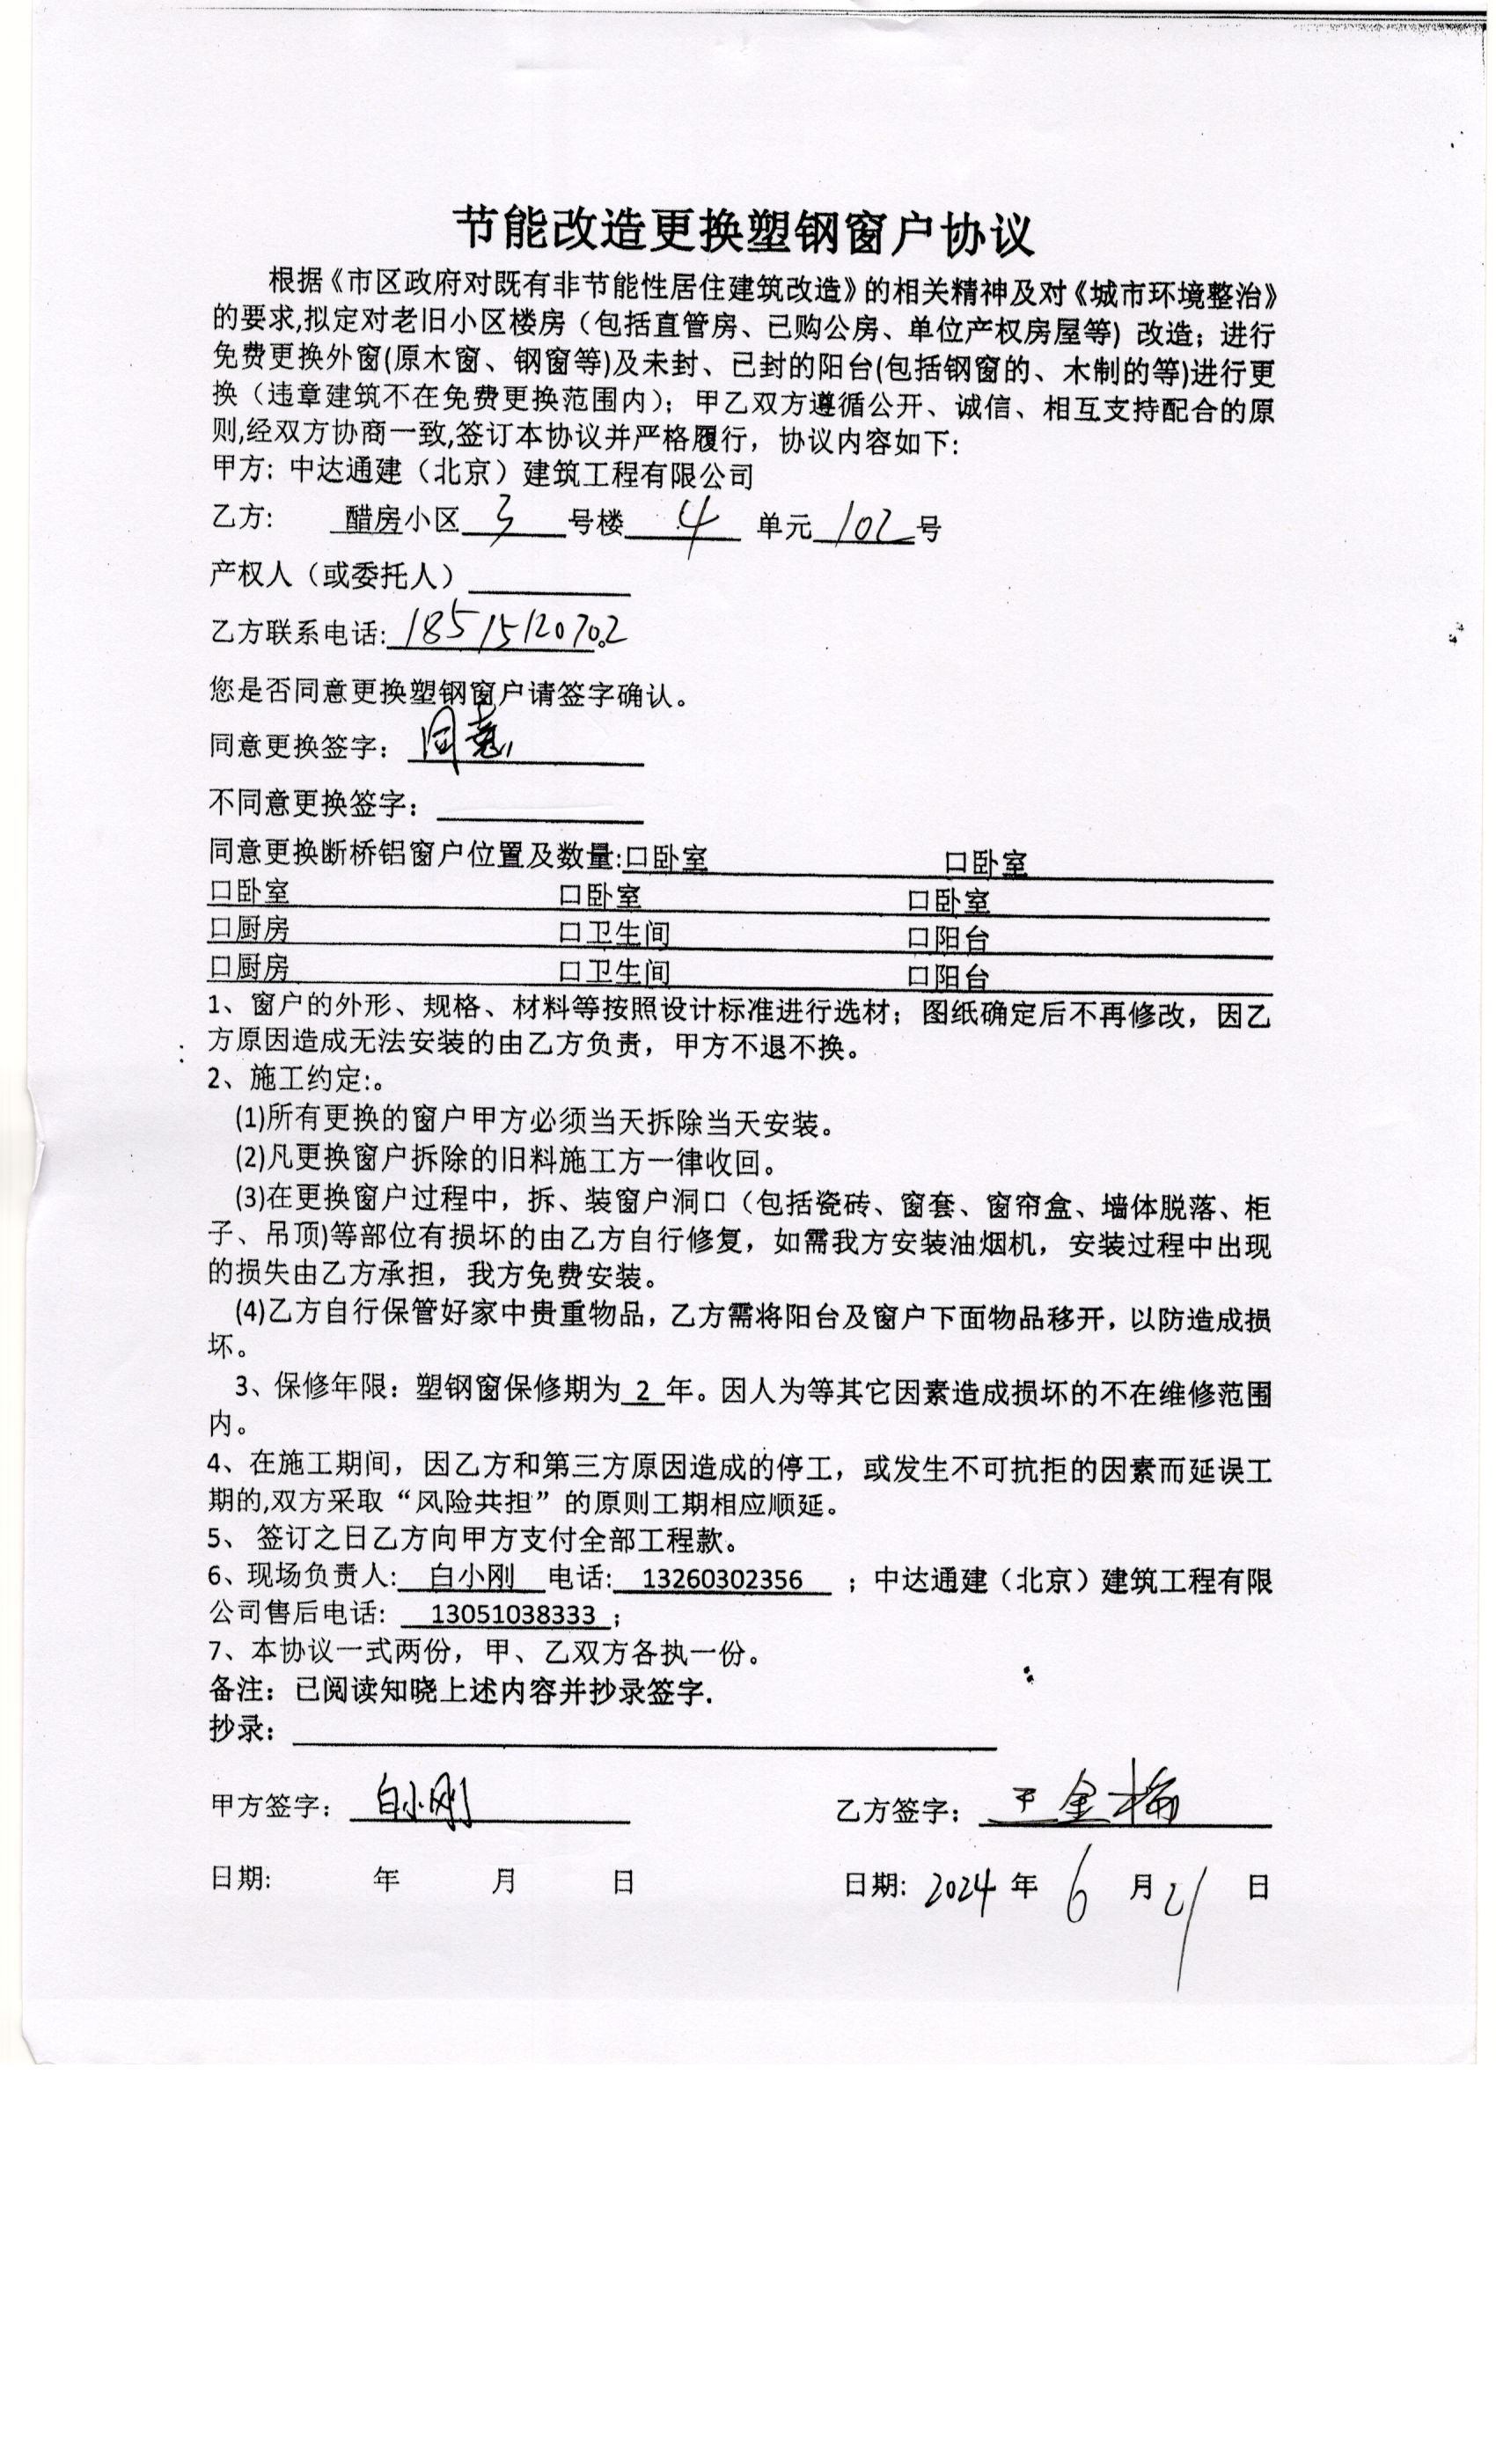 节能改造更换塑钢窗户协议
根据《市区政府对既有非节能性居住建筑改造》的相关精神及对《城市环境整治》
的要求,拟定对老旧小区楼房（包括直管房、已购公房、单位产权房屋等）改造；进行
免费更换外窗(原木窗、钢窗等)及未封、已封的阳台(包括钢窗的、木制的等)进行更
换（违章建筑不在免费更换范围内）；甲乙双方遵循公开、诚信、相互支持配合的原
则,经双方协商一致,签订本协议并严格履行，协议内容如下:
甲方: 中达通建（北京）建筑工程有限公司
乙方: 醋房小区 3 号楼 4 单元 102 号
产权人（或委托人）
乙方联系电话: 18515120702
您是否同意更换塑钢窗户请签字确认。
同意更换签字： 同意
不同意更换签字：
同意更换断桥铝窗户位置及数量:口卧室 口卧室
口卧室 口卧室 口卧室
口厨房 口卫生间 口阳台
口厨房 口卫生间 口阳台
1、窗户的外形、规格、材料等按照设计标准进行选材；图纸确定后不再修改，因乙
方原因造成无法安装的由乙方负责，甲方不退不换。
2、施工约定:。
(1)所有更换的窗户甲方必须当天拆除当天安装。
(2)凡更换窗户拆除的旧料施工方一律收回。
(3)在更换窗户过程中，拆、装窗户洞口（包括瓷砖、窗套、窗帘盒、墙体脱落、柜
子、吊顶)等部位有损坏的由乙方自行修复，如需我方安装油烟机，安装过程中出现
的损失由乙方承担，我方免费安装。
(4)乙方自行保管好家中贵重物品，乙方需将阳台及窗户下面物品移开，以防造成损
坏。
3、保修年限：塑钢窗保修期为 2 年。因人为等其它因素造成损坏的不在维修范围
内。
4、在施工期间，因乙方和第三方原因造成的停工，或发生不可抗拒的因素而延误工
期的,双方采取“风险共担”的原则工期相应顺延。
5、 签订之日乙方向甲方支付全部工程款。
6、现场负责人: 白小刚 电话: 13260302356 ；中达通建（北京）建筑工程有限
公司售后电话: 13051038333 ；
7、本协议一式两份，甲、乙双方各执一份。
备注：已阅读知晓上述内容并抄录签字.
抄录：
甲方签字： 白小刚 乙方签字： 王金梅
日期: 年 月 日 日期: 2024 年 6 月 21 日